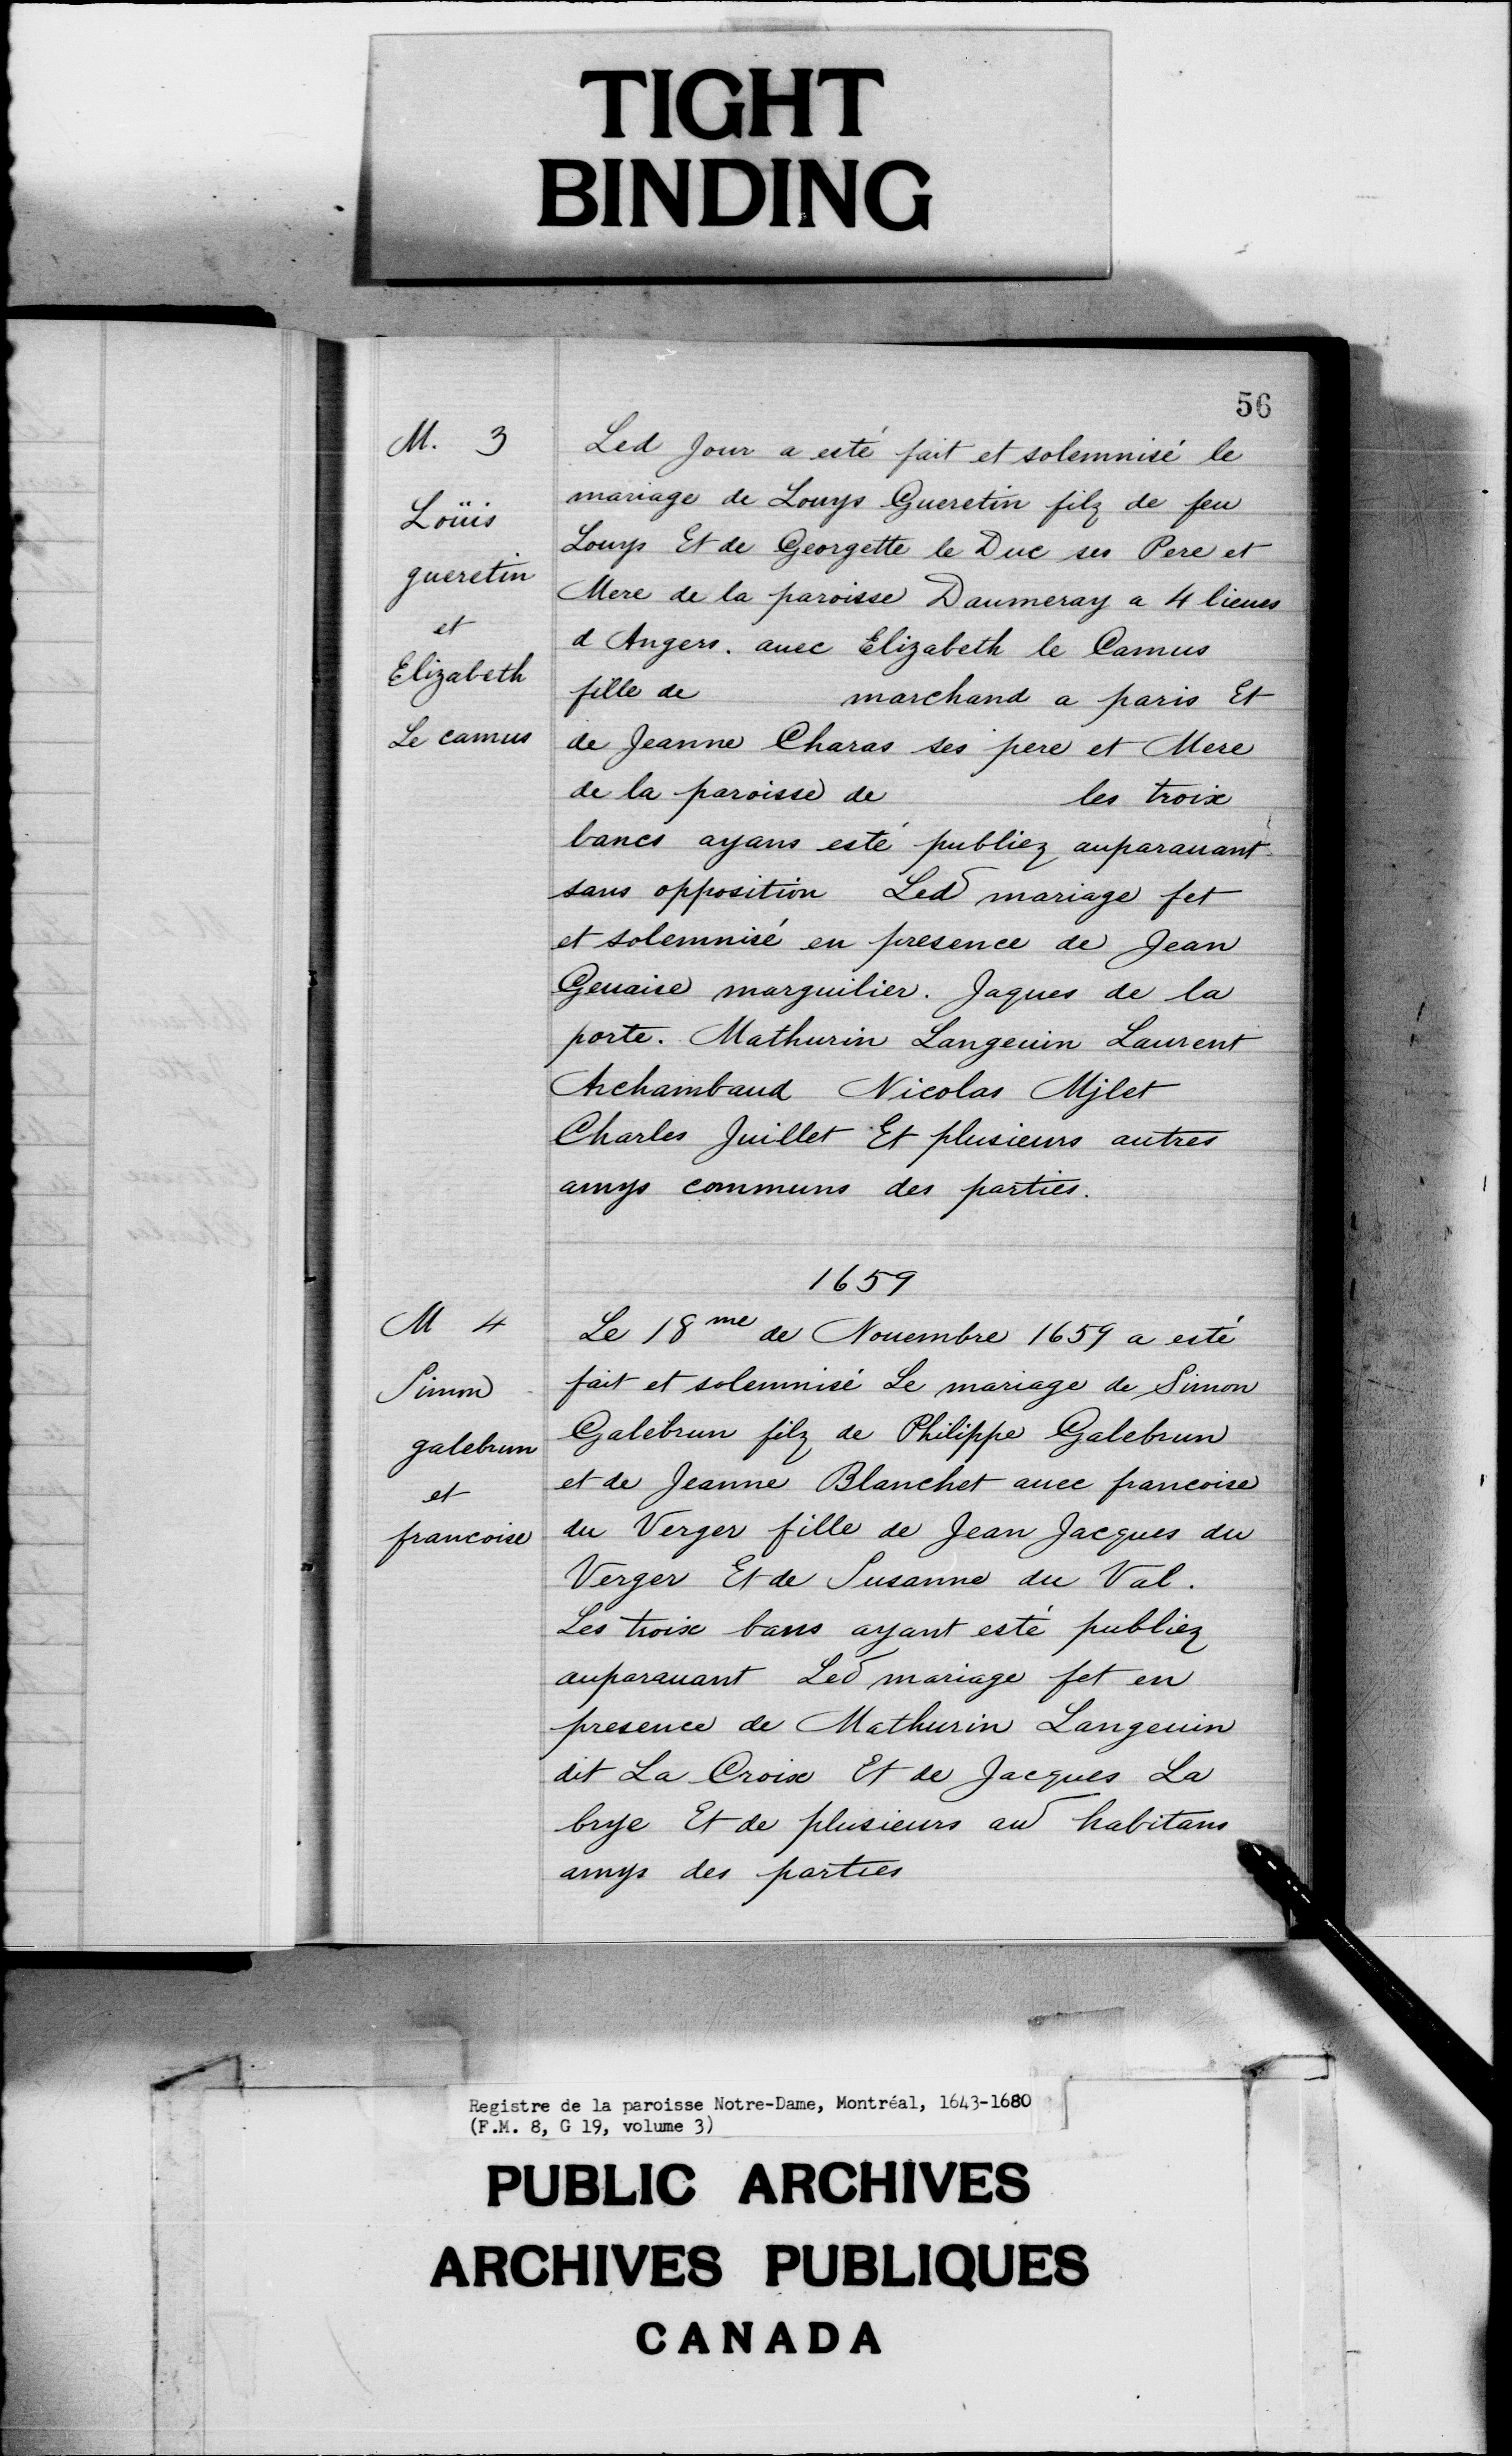 TIGHT
BINDING
56
M. 3
Loüis
gueretin
et
Elizabeth
Le camus
Led Jour a esté fait et solemnisé le
mariage de Louys Gueretin filz de feu
Louys Et de Georgette le Duc ses Pere et
Mere de la paroisse Daumeray a 4 lieues
d Angers. auec Elizabeth le Camus
fille de marchand a paris Et
de Jeanne Charas ses pere et Mere
de la paroisse de les troix
bancs ayans esté publiez auparauant
sans opposition Led mariage fet
et solemnisé en presence de Jean
Geuaise marguilier. Jaques de la
porte. Mathurin Langeuin Laurent
Archambaud Nicolas Mjlet
Charles Juillet Et plusieurs autres
amys communs des parties.
1659
M 4
Simon
galebrun
et
francoise
Le 18me de Nouembre 1659 a esté
fait et solemnisé Le mariage de Simon
Galebrun filz de Philippe Galebrun
et de Jeanne Blanchet auec francoise
du Verger fille de Jean Jacques du
Verger Et de Susanne du Val.
Les troix bans ayant esté publiez
auparauant Led mariage fet en
presence de Mathurin Langeuin
dit La Croix Et de Jacques La
brye Et de plusieurs au habitans
amys des parties
Registre de la paroisse Notre-Dame, Montréal, 1643-1680
(F.M. 8, G 19, volume 3)
PUBLIC ARCHIVES
ARCHIVES PUBLIQUES
CANADA